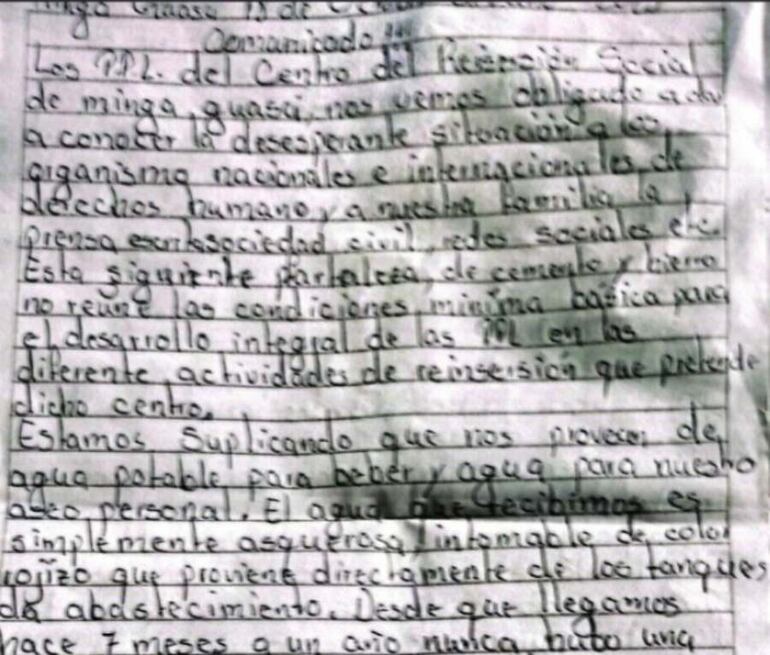 Comunicado
Los P.P.L. del Centro del Reinserción Social
de minga guasú, nos vemos obligado a dar
a conocer la desesperante situación a los
organismo nacionales e internacionales, de
derechos humano, y a nuestra familia la
prensa escrita sociedad civil, redes sociales etc.
Esta siguiente fortaleza, de cemento y hierro
no reúne las condiciones, minima basica para
el desarrollo integral de las PPL en las
diferente actividades de reinserción que pretende
dicho centro.
Estamos Suplicando que nos provean de
agua potable para beber y agua para nuestro
aseo personal. El agua que recibimos es
simplemente asquerosa, intomable de color
rojizo que proviene directamente de los tanques
de abastecimiento. Desde que llegamos
hace 7 meses a un año nunca, hubo una